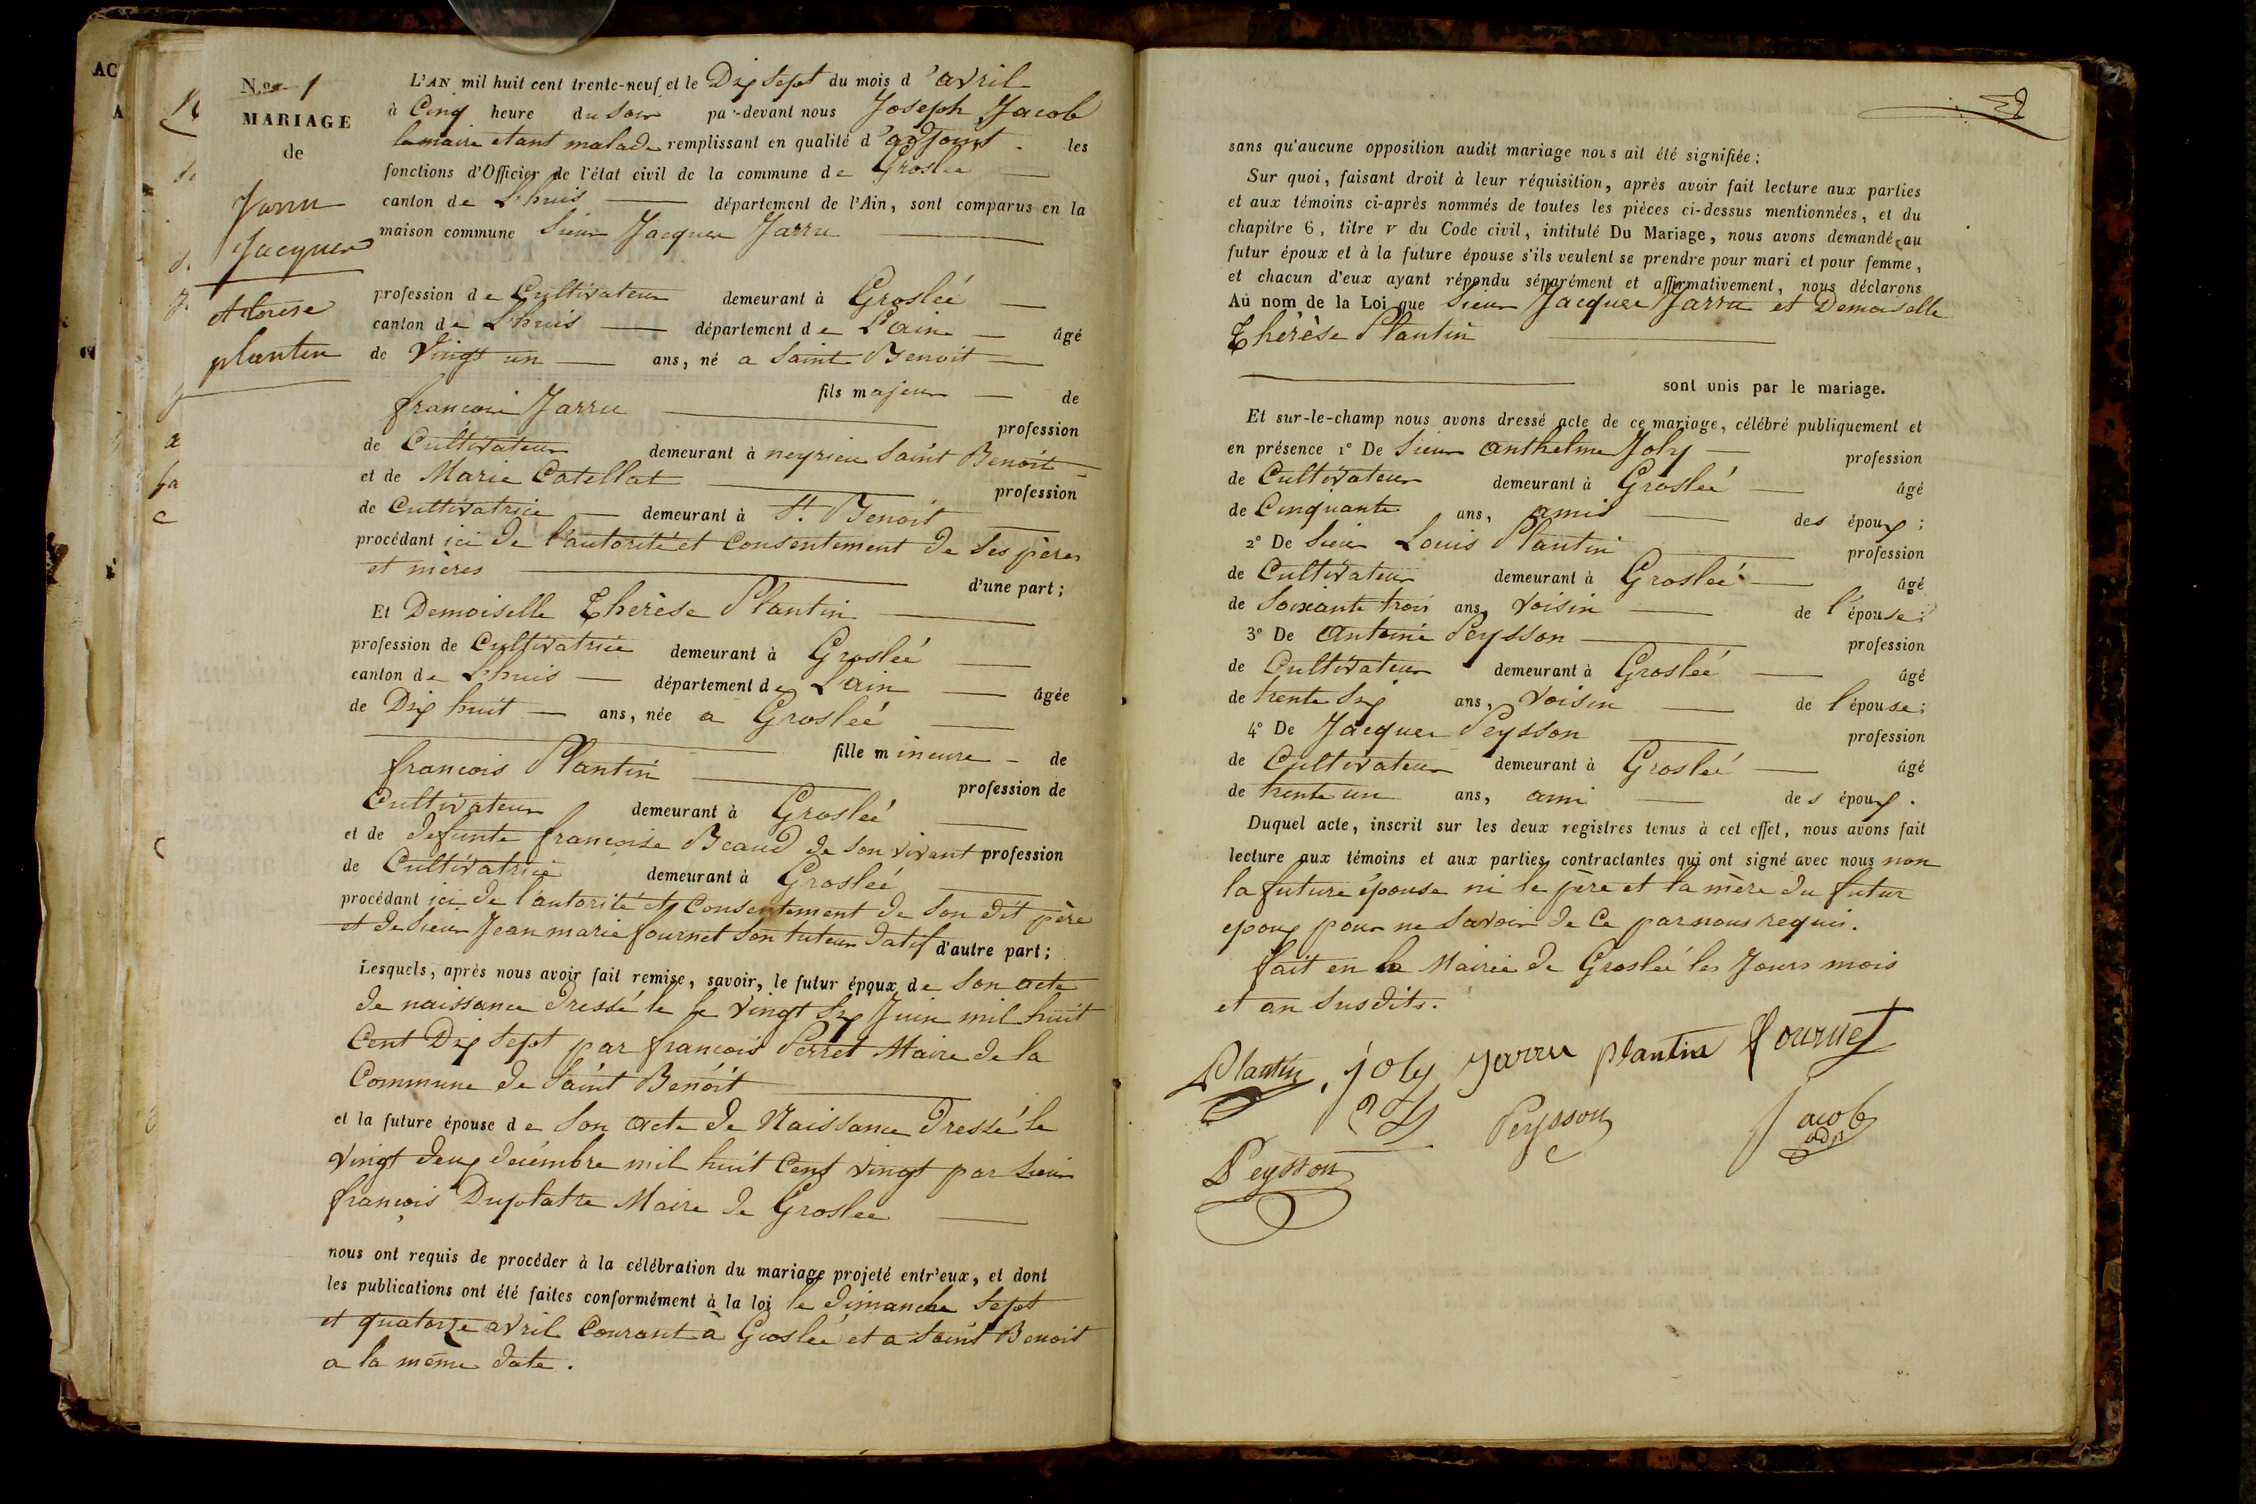 N.os 1
MARIAGE
de
Jarru
Jacques
et therese
plantin
L'AN mil huit cent trente-neuf et le Dix sept du mois d'avril
à Cinq heure du soir par-devant nous Joseph Jacob
le maire etant malade remplissant en qualité d'adjoint les
fonctions d'Officier de l'état civil de la commune de Groslée
canton de L'huis département de l'Ain, sont comparus en la
maison commune Sieur Jacques Jarru
profession de Cultivateur demeurant à Groslée
canton de L'huis département de L'ain âgé
de Vingt un ans, né a Saint Benoit
fils majeur de
françois Jarru profession
de Cultivateur demeurant à neyrieu Saint Benoit
et de Marie Catellat profession
de Cultivatrice demeurant à St. Benoit
procédant ici de l'autorité et Consentement de Ses pères
et mères d'une part;
Et Demoiselle Thérèse Plantin
profession de Cultivatrice demeurant à Groslée
canton de L'huis département de L'ain âgée
de Dix huit ans, née a Groslée
fille mineure de
francois Plantin profession de
Cultivateur demeurant à Groslée
et de defunte francoise Beaud de son vivant profession
de Cultivatrice demeurant à Groslée
procédant ici de l'autorité et Consentement de Son dit père
et de Sieur Jean marie fournet Son tuteur datif d'autre part;
Lesquels, après nous avoir fait remise, savoir, le futur époux de Son acte
de naissance dressé le le vingt Six Juin mil huit
Cent Dix sept par francois Perret Maire de la
Commune de Saint Benoit
et la future épouse de Son acte de Naissance Dressé le
vingt deux decembre mil huit Cent vingt par Sieur
françois Duplatre Maire de Groslee
nous ont requis de procéder à la célébration du mariage projeté entr'eux, et dont
les publications ont été faites conformément à la loi le dimanche Sept
et quatorze avril Courant à Groslée et a Saint Benoit
a la même date.
sans qu'aucune opposition audit mariage nous ait été signifiée:
Sur quoi, faisant droit à leur réquisition, après avoir fait lecture aux parties
et aux témoins ci-après nommés de toutes les pièces ci-dessus mentionnées, et du
chapitre 6, titre V du Code civil, intitulé Du Mariage, nous avons demandé au
futur époux et à la future épouse s'ils veulent se prendre pour mari et pour femme,
et chacun d'eux ayant répondu séparément et affirmativement, nous déclarons
Au nom de la Loi que Sieur Jacques Jarru et Demoiselle
Thérèse Plantin
sont unis par le mariage.
Et sur-le-champ nous avons dressé acte de ce mariage, célébré publiquement et
en présence 1° De Sieur Anthelme Joly profession
de Cultivateur demeurant à Groslée âgé
de Cinquante ans, amis des époux;
2° De Sieur Louis Plantin profession
de Cultivateur demeurant à Groslée âgé
de Soixante trois ans, voisin de l'épouse;
3° De Antoine Peysson profession
de Cultivateur demeurant à Groslée âgé
de trente Six ans, voisin de l'épouse;
4° De Jacques Peysson profession
de Cultivateur demeurant à Groslée âgé
de trente un ans, ami des époux.
Duquel acte, inscrit sur les deux registres tenus à cet effet, nous avons fait
lecture aux témoins et aux parties contractantes qui ont signé avec nous non
la future épouse ni le père et la mère du futur
epoux pour ne Savoir de Ce par nous requis.
fait en la Mairie de Groslée les Jours mois
et an Susdits.
Plantin joly Jarru plantin fournet
Peysson Jacob
adjt
Peysson